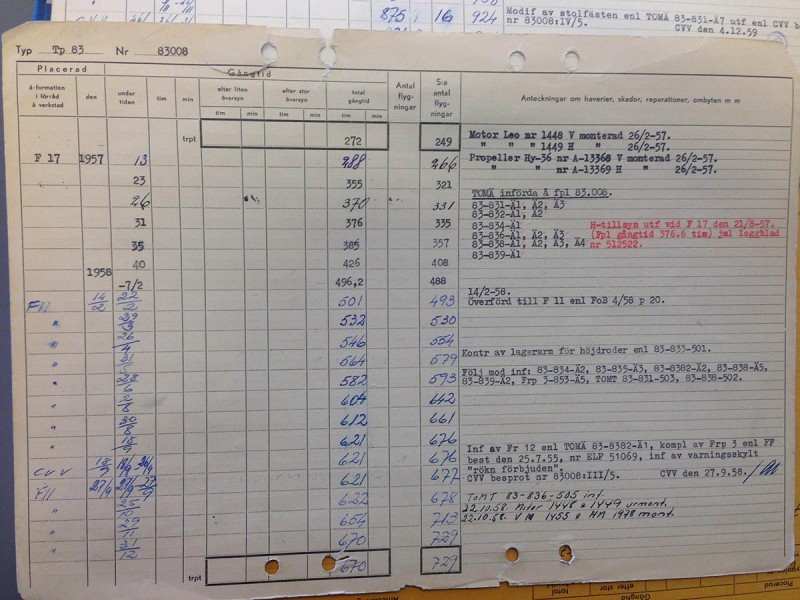 875 16 924
Modif av stolfästen enl TOMÄ 83-831-Ä7 utf enl CVV
nr 83008:IV/5. CVV den 4.12.59
Typ Tp 83 Nr 83008
Placerad Gångtid
å-formation i förråd å verkstad den under tiden tim min efter liten översyn efter stor översyn total gångtid Antal flygningar S:a antal flygningar Anteckningar om haverier, skador, reparationer, ombyten m m
tim min tim min tim min
trpt 272 249 Motor Leo nr 1448 V monterad 26/2-57.
" " " 1449 H " 26/2-57.
F 17 1957 13 288 266 Propeller Hy-36 nr A-13368 V monterad 26/2-57.
" " nr A-13369 H " 26/2-57.
23 355 321
TOMÄ införda å fpl 83.008.
26 370 331 83-831-Ä1, Ä2, Ä3
83-832-Ä1, Ä2
31 376 335 83-834-Ä1 H-tillsyn utf vid F 17 den 21/8-57.
83-836-Ä1, Ä2, Ä3 (Fpl gångtid 376.6 tim) jml loggblad
35 385 357 83-838-Ä1, Ä2, Ä3, Ä4 nr 512522.
83-839-Ä1
40 426 408
1958
-7/2 496,2 488
14/2-58.
F11 14/2 22/2 501 493 Överförd till F 11 enl FoB 4/58 p 20.
" 532 530
" 546 554
" 564 579 Kontr av lagerarm för höjdroder enl 83-833-501.
" 582 593 Följ mod inf: 83-834-Ä2, 83-835-Ä3, 83-8382-Ä2, 83-838-Ä5,
83-839-Ä2, Frp 3-853-Ä5, TOMT 83-831-503, 83-838-502.
" 604 642
" 30/8 612 661
" 621 676
Inf av Fr 12 enl TOMÄ 83-8382-Ä1, kompl av Frp 3 enl FF
CVV 621 676 best den 25.7.55, nr ELF 51069, inf av varningsskylt
"rökn förbjuden".
F11 27/9 27/9 621 677 CVV besprot nr 83008:III/5. CVV den 27.9.58.
" 622 678 TOMT 83-836-505 inf.
" 654 713 22.10.58 Motor 1448 o 1449 urmont.
22.10.58. VM 1455 o HM 1478 mont.
" 670 729
" 31/12
trpt 670 729